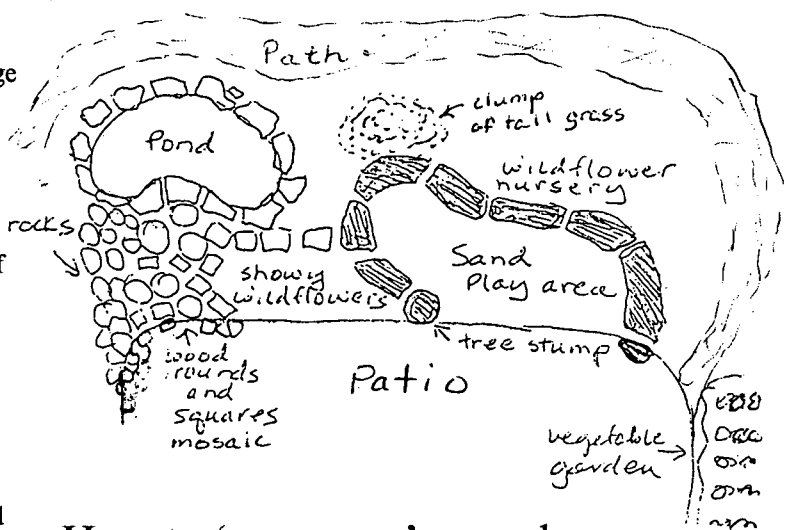 ge
Path
clump
of tall grass
Pond
wildflower
nursery
rocks
f
showy
wildflowers
Sand
Play area
tree stump
wood
rounds
and
squares
mosaic
Patio
vegetable
garden
d